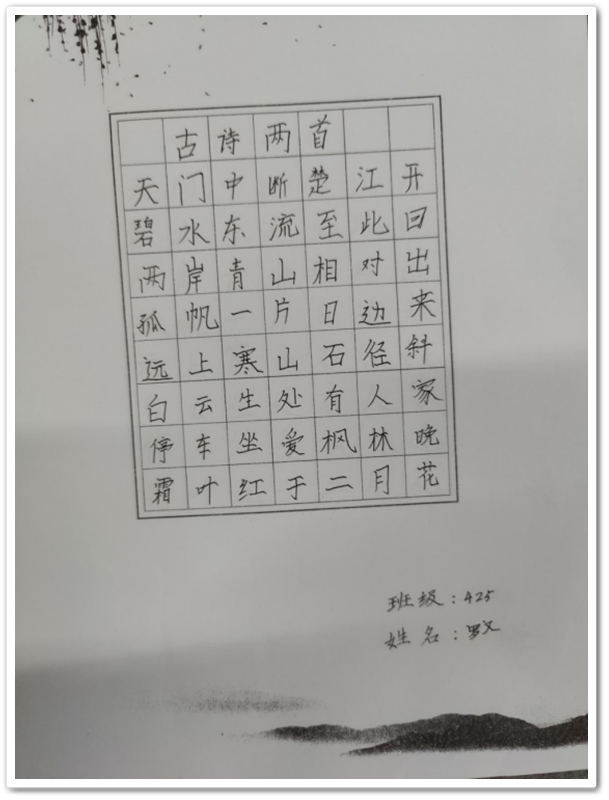 古诗两首
天门中断楚江开
碧水东流至此回
两岸青山相对出
孤帆一片日边来
远上寒山石径斜
白云生处有人家
停车坐爱枫林晚
霜叶红于二月花
班级：425
姓名：罗义